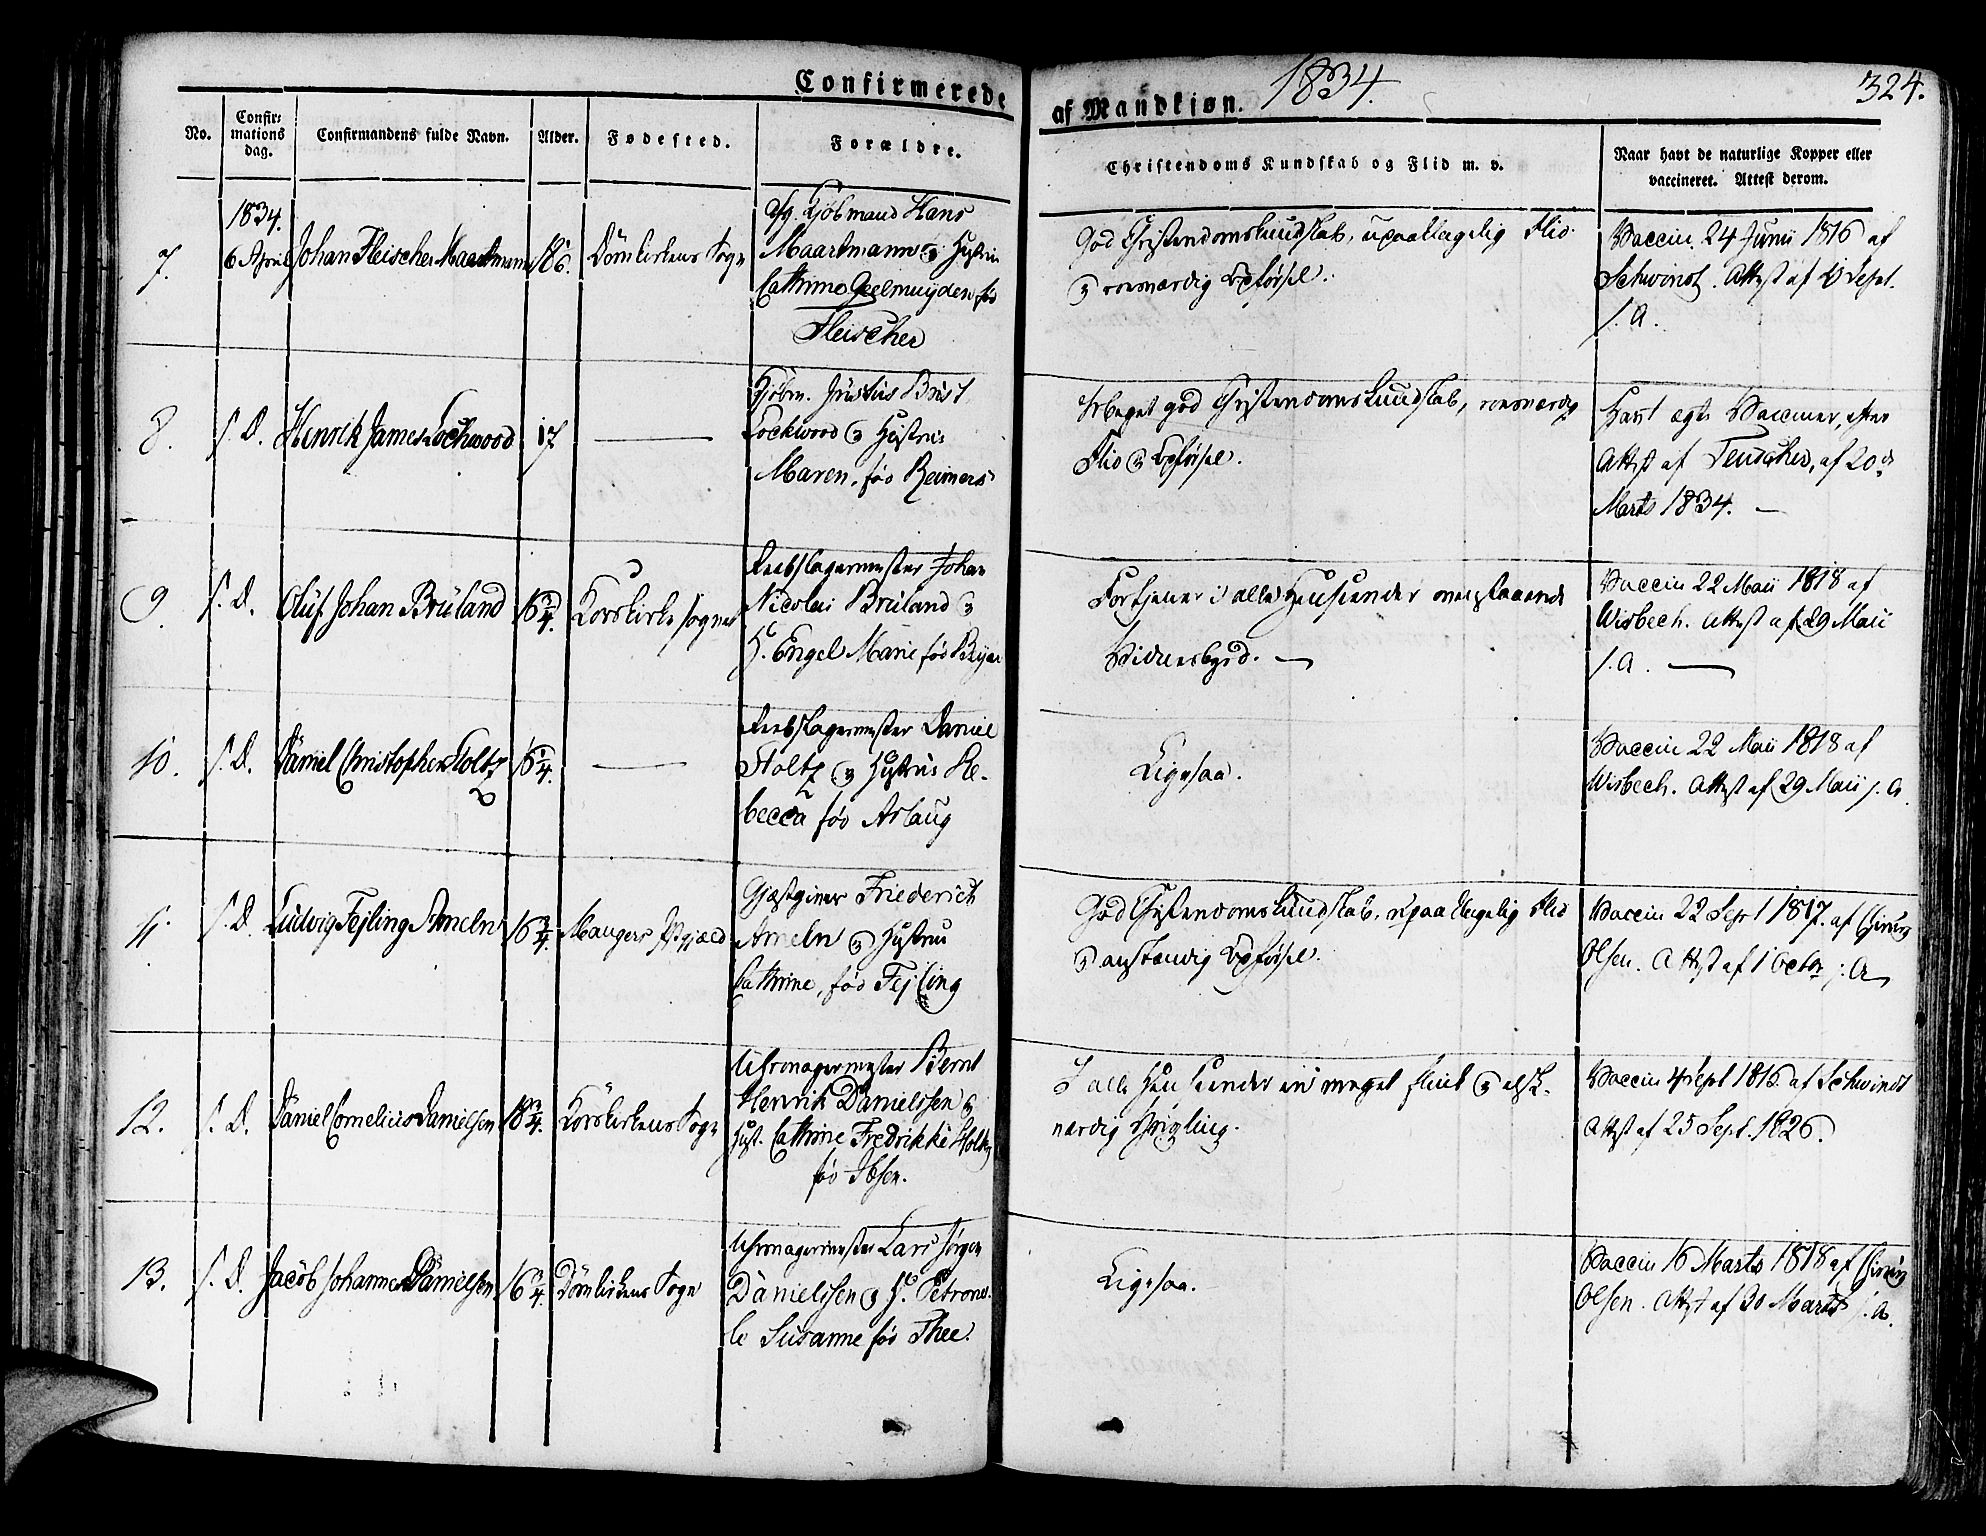 Confirmerede
af Mandkjøn. 1834. 324.
No.
Confir=
mations
dag.
Confirmandens fulde Navn.
Alder.
Fødested.
Forældre.
Christendoms Kundskab og Flid m. v.
Naar havt de naturlige Kopper eller
vaccineret. Attest derom.
7.
1834.
6 April
Johan Fleischer Maartmann
16.
Domkirkens Sogn
Kjøbmand Hans
Maartmann og Hustru
Cathrine Geelmuyden fød
Fleischer
God Christendomskundskab, upaaklagelig Flid
og roesværdig Opførsel.
Vaccin. 24 Junii 1816 af
Schwindt. Attest af Sept.
s. A.
8.
s. D.
Henrik James Lockwood
17
Kjøbm. Justus Brist
Lockwood og Hustrue
Maren, fød Reimers
Meget god Christendomskundskab, roesværdig
Flid og Opførsel.
Havt ægte Vacciner, efter
Attest af Teuscher, af 20de
Marts 1834. —
9.
s. D.
Oluf Johan Bruland
16 3/4.
Korskirke Sognet
Reebslagermester Johan
Nicolai Bruland og
H. Engel Marie fød
Fortjener i alle Henseender ovenstaaende
Vidnesbyrd. —
Vaccin 22 Maii 1818 af
Wisbech. Attest af 29 Maii
s. A. —
10.
s. D.
Daniel Christopher Stoltz
16 1/4.
Reebslagermester Daniel
Stoltz og Hustrue Re-
becca fød Aslaug
Ligesaa.
Vaccin 22 Maii 1818 af
Wisbech. Attest af 29 Maii s. A
11.
s. D.
Ludvig Fejling Ameln
16 3/4.
Manger Pstgjæld
Gjæstgiver Friederich
Ameln og Hustru
Cathrine, fød Fejling
God Christendomskundskab, upaaklagelig Flid
og anstændig Opførsel.
Vaccin 22 Sept 1817. af Chirurg
Olsen. Attest af 1 Octbr s. A
12.
s. D.
Daniel Cornelius Danielsen
18 3/4.
Korskirkens Sogn
Uhrmagermester Bernt
Henrik Danielssen og
Hust. Cathrine Fredrikke Stoltz
fød Ibsen.
I alle Henseender en meget flink og elsk-
værdig Yngling.
Vaccin 4 Sept 1816. af Schwindt
Attest af 25 Sept. 1826.
13.
s. D.
Jacob Johannes Danielsen
16 1/4.
Domkirkens Sogn
Uhrmagermester Lars Jørgen
Danielssen og H. Petronel-
le Susanne fød Thee.
Ligesaa.
Vaccin 16 Marts 1818 af Chirurg
Olsen. Attest af 30 Marts s. A.